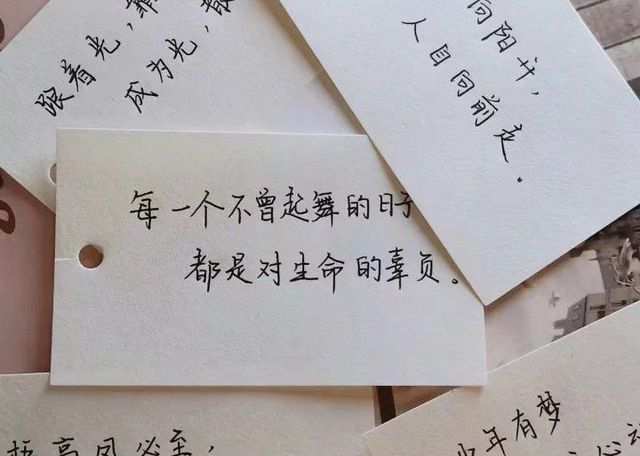 跟着光，靠
成为光，散
向阳升，
人自向前走。
每一个不曾起舞的日子
都是对生命的辜负。
高凤必至，
少年有梦
心